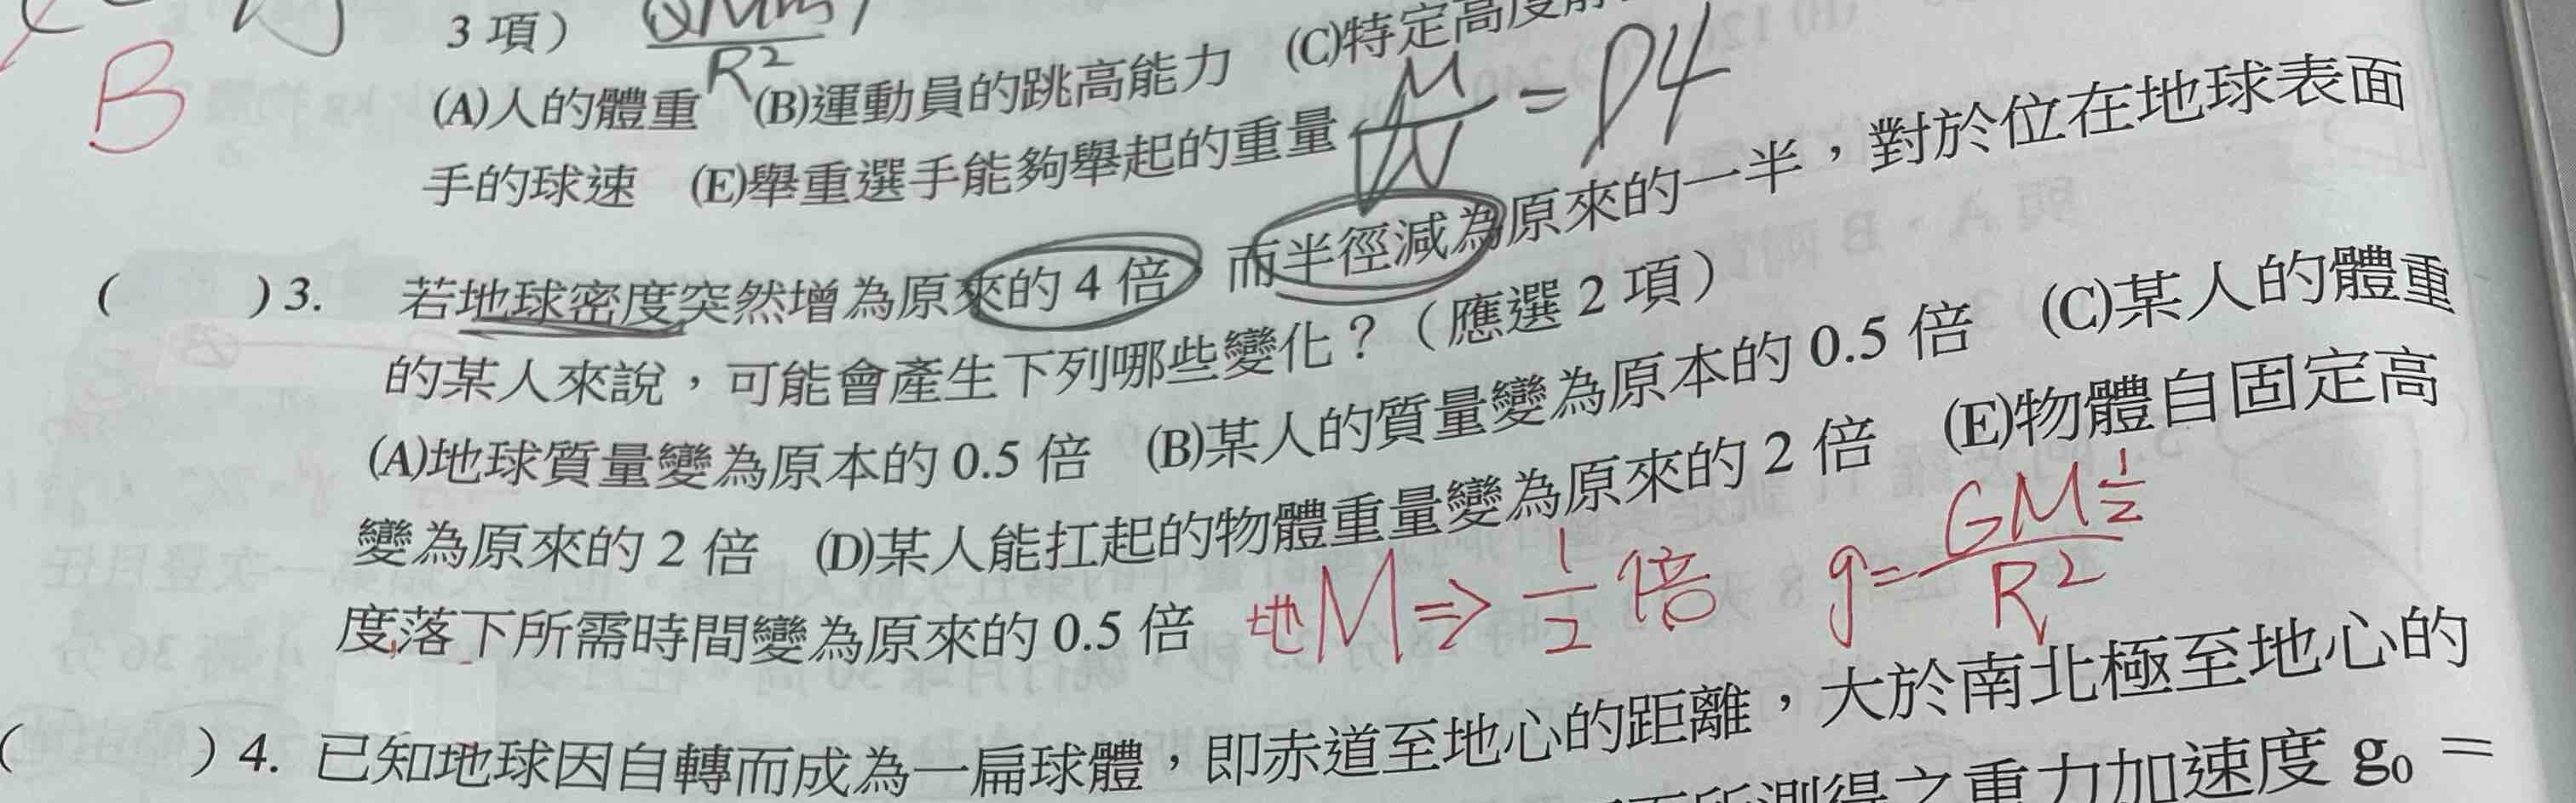 3 項）
GMm
R²
(A)人的體重 (B)運動員的跳高能力 (C)特定高度
B
手的球速 (E)舉重選手能夠舉起的重量
M
= D4
( ) 3. 若地球密度突然增為原來的 4 倍，而半徑減為原來的一半，對於位在地球表面
的某人來說，可能會產生下列哪些變化？（應選 2 項）
(A)地球質量變為原本的 0.5 倍 (B)某人的質量變為原本的 0.5 倍 (C)某人的體重
變為原來的 2 倍 (D)某人能扛起的物體重量變為原來的 2 倍 (E)物體自固定高
度落下所需時間變為原來的 0.5 倍
地M⇒1/2倍 g=GM1/2/R²
( ) 4. 已知地球因自轉而成為一扁球體，即赤道至地心的距離，大於南北極至地心的
所測得之重力加速度 g₀ =